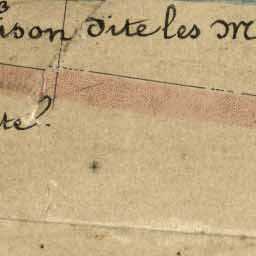 ison dite les M
te.